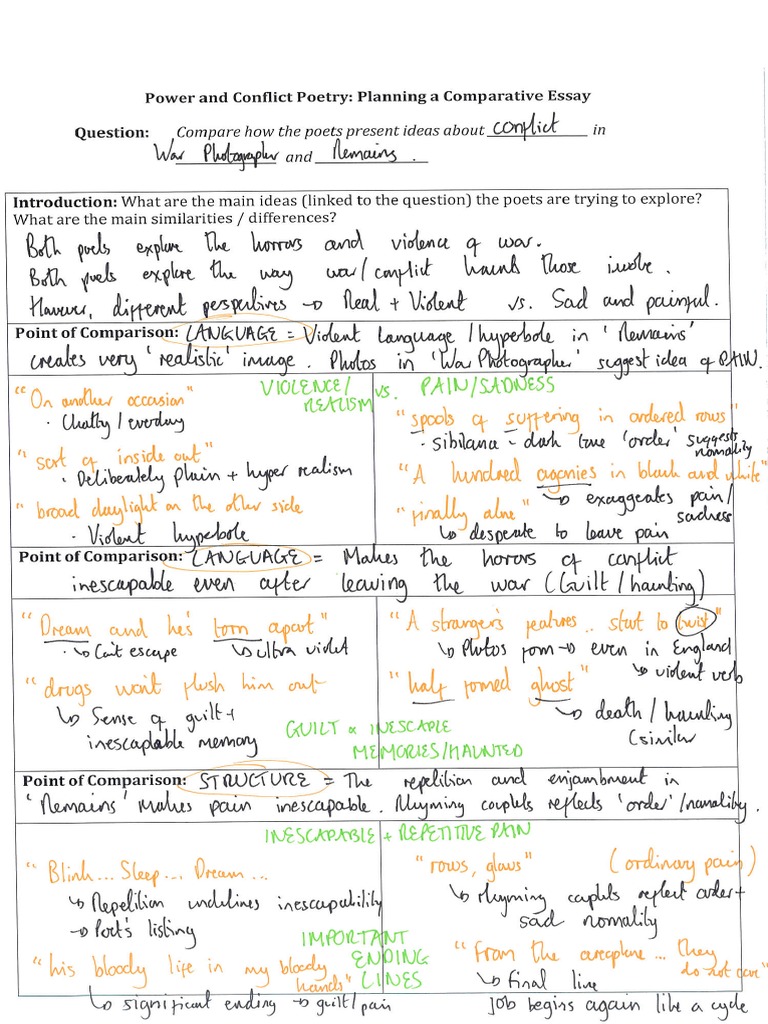 Power and Conflict Poetry: Planning a Comparative Essay
Question: Compare how the poets present ideas about conflict in
War Photographer and Remains.
Introduction: What are the main ideas (linked to the question) the poets are trying to explore?
What are the main similarities / differences?
Both poets explore the horrors and violence of war.
Both poets explore the way war/conflict haunts those involve.
However, different perspectives → Real + Violent vs. Sad and painful.
Point of Comparison: LANGUAGE = Violent language / hyperbole in 'Remains'
creates very 'realistic' image. Photos in 'War Photographer' suggest idea of PAIN.
VIOLENCE/ REALISM vs. PAIN/SADNESS
"On another occasion"
· Chatty / everday
"sort of inside out"
· Deliberately plain + hyper realism
"broad daylight on the other side
· Violent hyperbole
"spools of suffering in ordered rows"
· sibilance = dark tone 'order' suggests nomality
"A hundred agonies in black and white"
↳ exaggerates pain/ sadness
"finally alone"
↳ desperate to leave pain
Point of Comparison: LANGUAGE = Makes the horrors of conflict
inescapable even after leaving the war (Guilt / haunting)
"Dream and he's torn apart"
· ↳ Can't escape ↳ ultra violet
"drugs won't flush him out
↳ Sense of guilt +
inescapable memory
"A stranger's features .. start to twist"
↳ Photos form → even in England
↳ violent verb
"half formed ghost"
↳ death / haunting
(similar
GUILT & INESCAPLE
MEMORIES/HAUNTED
Point of Comparison: STRUCTURE = The repetition and enjambment in
'Remains' makes pain inescapable. Rhyming couplets reflects 'order'/nomality.
INESCAPABLE + REPETITIVE PAIN
"Blink... Sleep... Dream...
↳ Repetition underlines inescapability
→ Poet's listing
"his bloody life in my bloody hands"
↳ significant ending → guilt/pain
"rows, glows" (ordinary pain)
↳ Rhyming couplets reflect order +
sad normality
IMPORTANT
ENDING
LINES
"From the aeroplane ... they do not care"
↳ final line
job begins again like a cycle